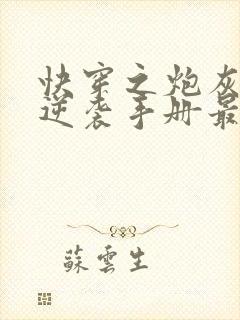 快穿之炮灰
逆袭手册最
蘇雲生